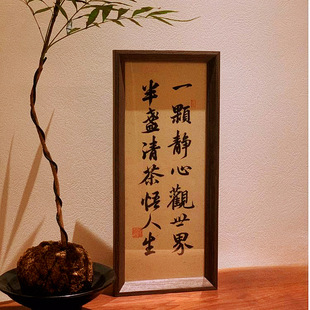 一顆静心觀世界
半盞清茶悟人生